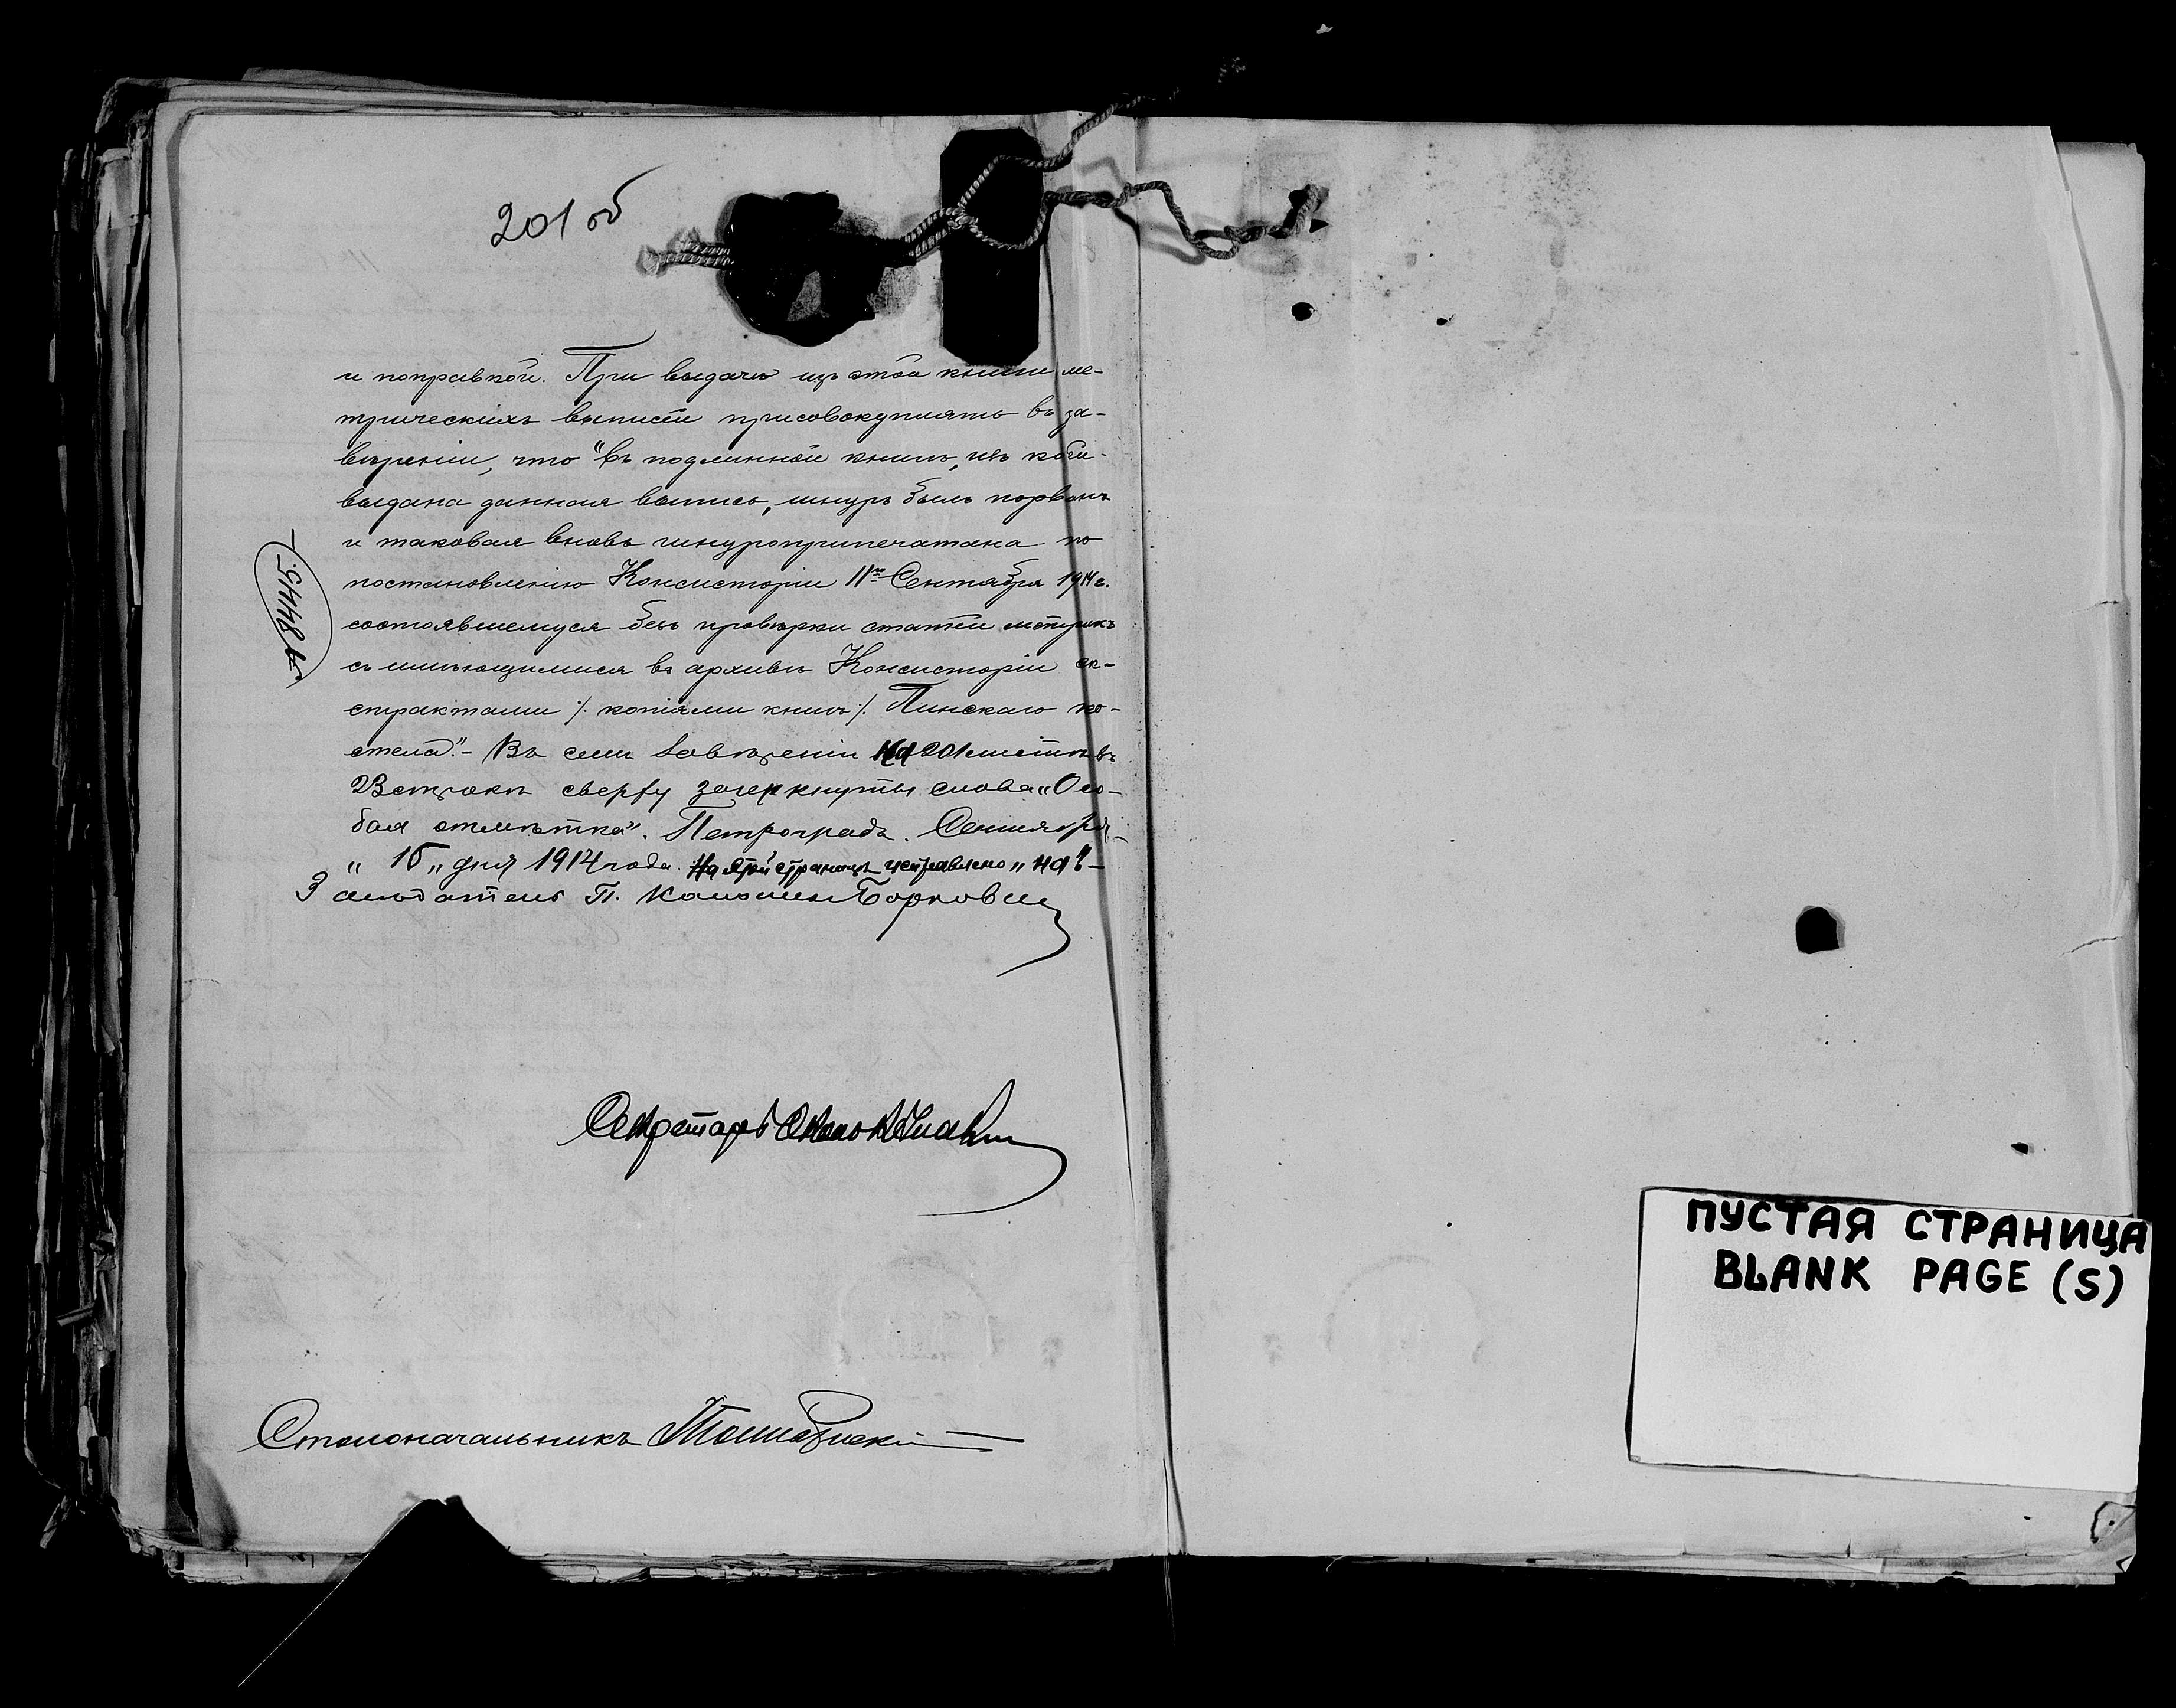 201 об
и поправкой. При выдачѣ изъ этой книги ме-
трическихъ выписей присовокуплять въ за-
вѣреніи, что "въ подлинной книгѣ, изъ коей
выдана данная выпись, шнуръ былъ порванъ
и таковая вновь шнуроприпечатана по
постановленію Консисторіи 11го Сентября 1914 г.
состоявшемуся безъ провѣрки статей метрикъ
съ имѣющимися въ архивѣ Консисторіи эк-
страктами /. копіями книгъ /. Пинскаго ко-
стела". - Въ семъ завѣреніи на 201 листѣ въ
23 строкѣ сверху зачеркнуты слова „Осо-
бая отмѣтка". Петроградъ. Сентября
„ 15 „ дня 1914 года. На этой страницѣ исправлено „на". -
Засѣдатель П.
Секретарь
Столоначальникъ
ПУСТАЯ СТРАНИЦА
BLANK PAGE (S)